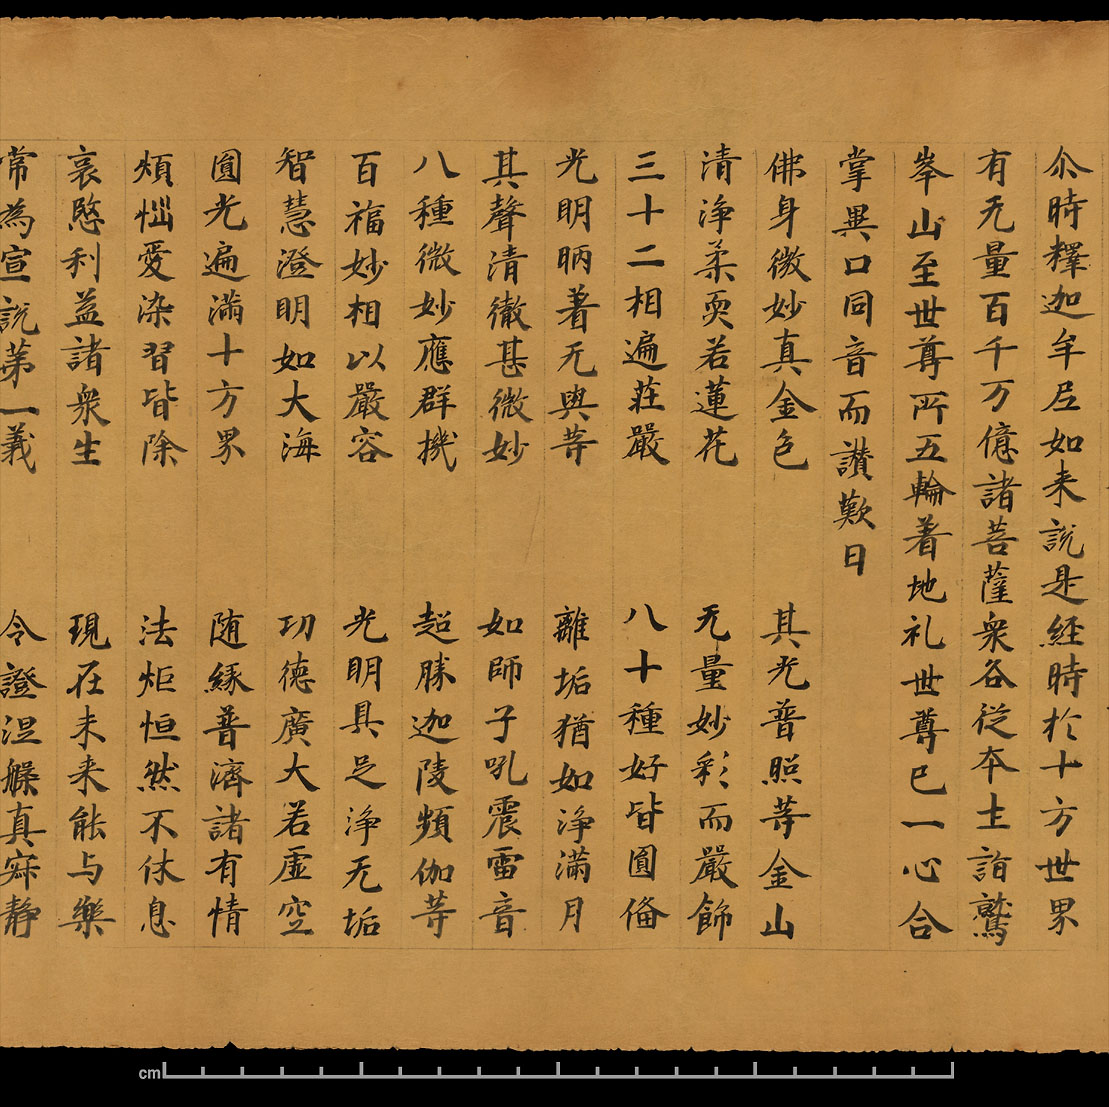 尒時釋迦牟尼如来說是経時於十方世界
有无量百千万億諸菩薩衆各従本土詣鷲
峯山至世尊所五輪著地礼世尊已一心合
掌異口同音而讃歎曰
佛身微妙真金色 其光普照等金山
清浄柔耎若蓮花 无量妙彩而嚴飾
三十二相遍莊嚴 八十種好皆圓備
光明昞著无與等 離垢猶如浄滿月
其聲清徹甚微妙 如師子吼震雷音
八種微妙應群機 超勝迦陵頻伽等
百福妙相以嚴容 光明具足浄无垢
智慧澄明如大海 功德廣大若虛空
圓光遍滿十方界 随緣普濟諸有情
煩惱愛染習皆除 法炬恒然不休息
哀愍利益諸衆生 現在未来能与樂
常為宣說第一義 令證涅槃真寂靜
cm